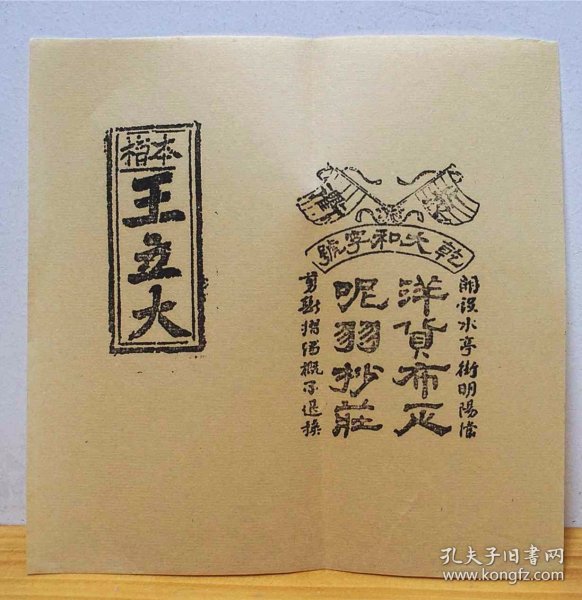 號字和大乾
開設水亭街明陽
洋貨布疋
呢羽抄莊
剪斷
概不退換
本楷
王立大
孔夫子旧书网
www.kongfz.com